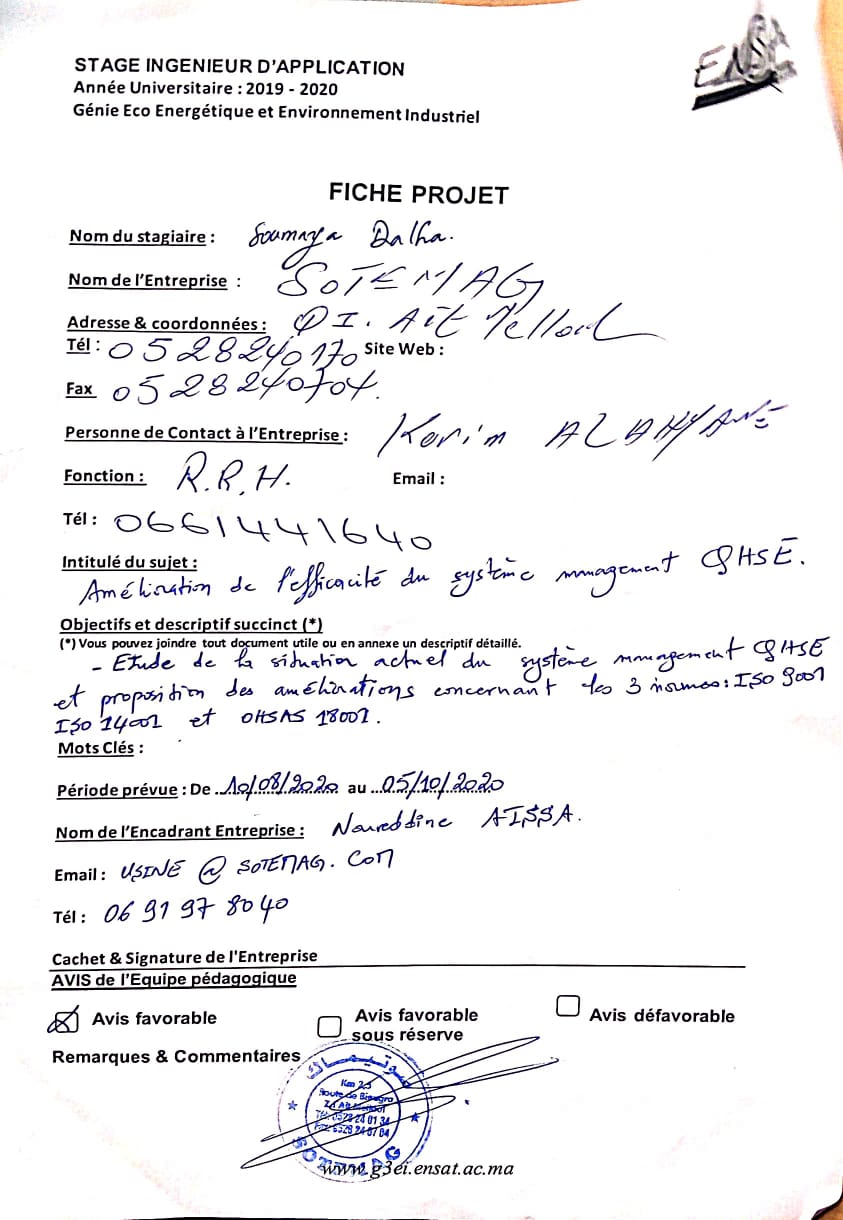 ENSA
STAGE INGENIEUR D'APPLICATION
Année Universitaire : 2019 - 2020
Génie Eco Energétique et Environnement Industriel
FICHE PROJET
Nom du stagiaire : Soumaya Dalha.
Nom de l'Entreprise : SOTEMAG
Adresse & coordonnées : QI. Ait Melloul
Tél : 0528240170 Site Web :
Fax 0528240704.
Personne de Contact à l'Entreprise : Karim
Fonction : R.R.H. Email :
Tél : 0661441640
Intitulé du sujet :
Amélioration de l'efficacité du système management QHSE.
Objectifs et descriptif succinct (*)
(*) Vous pouvez joindre tout document utile ou en annexe un descriptif détaillé.
- Etude de la situation actuel du système management QHSE
et proposition des améliorations concernant les 3 normes : ISO 9001
ISO 14001 et OHSAS 18001.
Mots Clés :
Période prévue : De ..10/08/2020 au ...05/10/2020
Nom de l'Encadrant Entreprise : Noureddine AISSA.
Email : USINE @ SOTEMAG. COM
Tél : 06 91 97 80 40
Cachet & Signature de l'Entreprise
AVIS de l'Equipe pédagogique
Avis favorable
Avis favorable
sous réserve
Avis défavorable
Remarques & Commentaires
سوتيماك
Km 2.5
Route de Biougra
Z.I Ait Melloul
Tél: 0528 24 01 34
Fax: 0528 24 07 04
SOTEMAG
www.g3ei.ensat.ac.ma